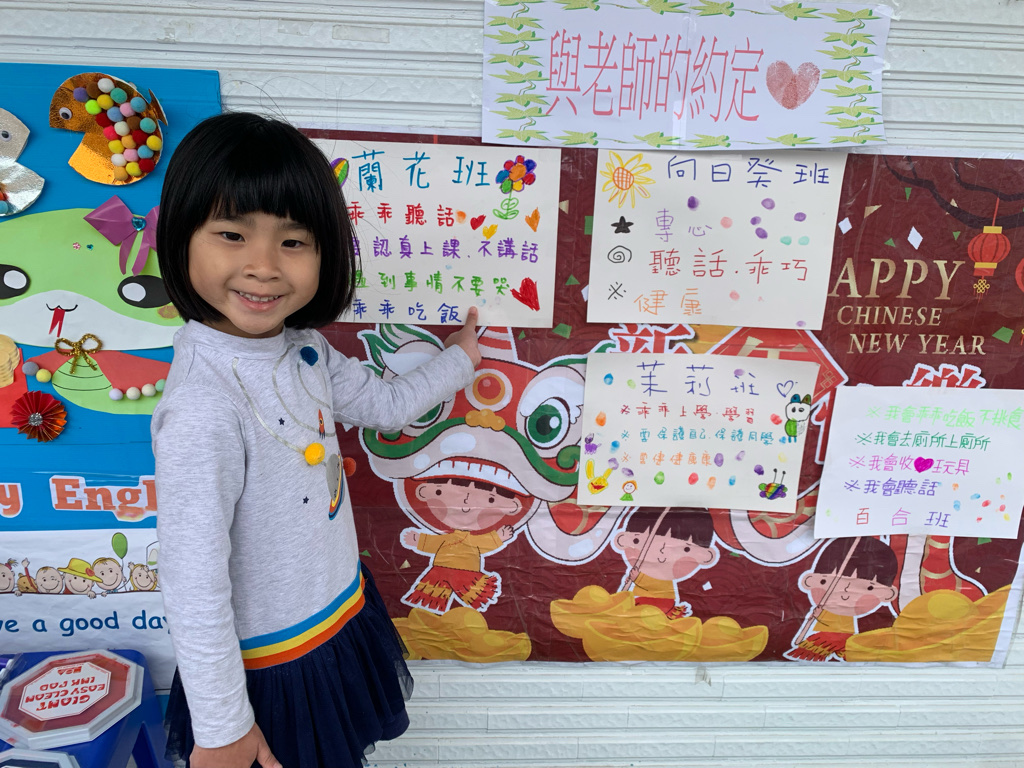 與老師的約定
蘭花班
乖乖聽話
認真上課.不講話
到事情不要哭
乖乖吃飯
向日葵班
專心
聽話.乖巧
※健康
茉莉班
※乖乖上學.學習
※要保護自己.保護同學
※要健健康康
※我會乖乖吃飯不挑食
※我會去廁所上廁所
※我會收玩具
※我會聽話
百合班
APPY
CHINESE
NEW YEAR
y Engl
e a good day
GIANT
EASY CLEAN
INK PAD